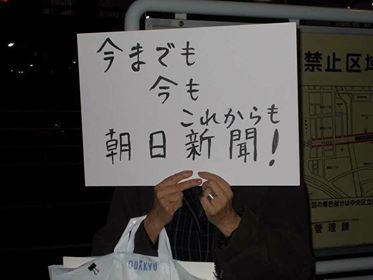 今までも
今も
これからも
朝日新聞!
禁止区域
管理課
ODAKYU